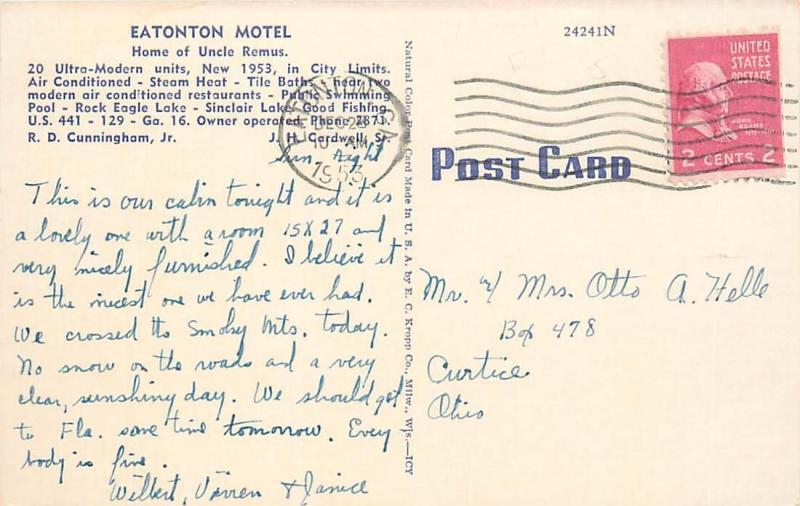 EATONTON MOTEL
Home of Uncle Remus.
20 Ultra-Modern units, New 1953, in City Limits.
Air Conditioned - Steam Heat - Tile Baths - near two
modern air conditioned restaurants - Public Swimming
Pool - Rock Eagle Lake - Sinclair Lake, Good Fishing.
U.S. 441 - 129 - Ga. 16. Owner operated, Phone 2871.
R. D. Cunningham, Jr. J. H. Cardwell, Sr.
Sun night
This is our cabin tonight and it is
a lovely one with a room 15X27 and
very nicely furnished. I believe it
is the nicest one we have ever had.
We crossed the Smoky Mts. today.
No snow on the roads and a very
clear, sunshiny day. We should get
to Fla. some time tomorrow. Every
body is fine.
Wilbert, Varren & Janice
EATONTON
DEC 28
10 AM
1953
Natural Color Post Card Made in U. S. A. by E. C. Kropp Co., Milw., Wis.—ICY
24241N
UNITED
STATES
POSTAGE
JOHN
ADAMS
2 CENTS 2
POST CARD
Mr. & Mrs. Otto A. Helle
Box 478
Curtice
Ohio